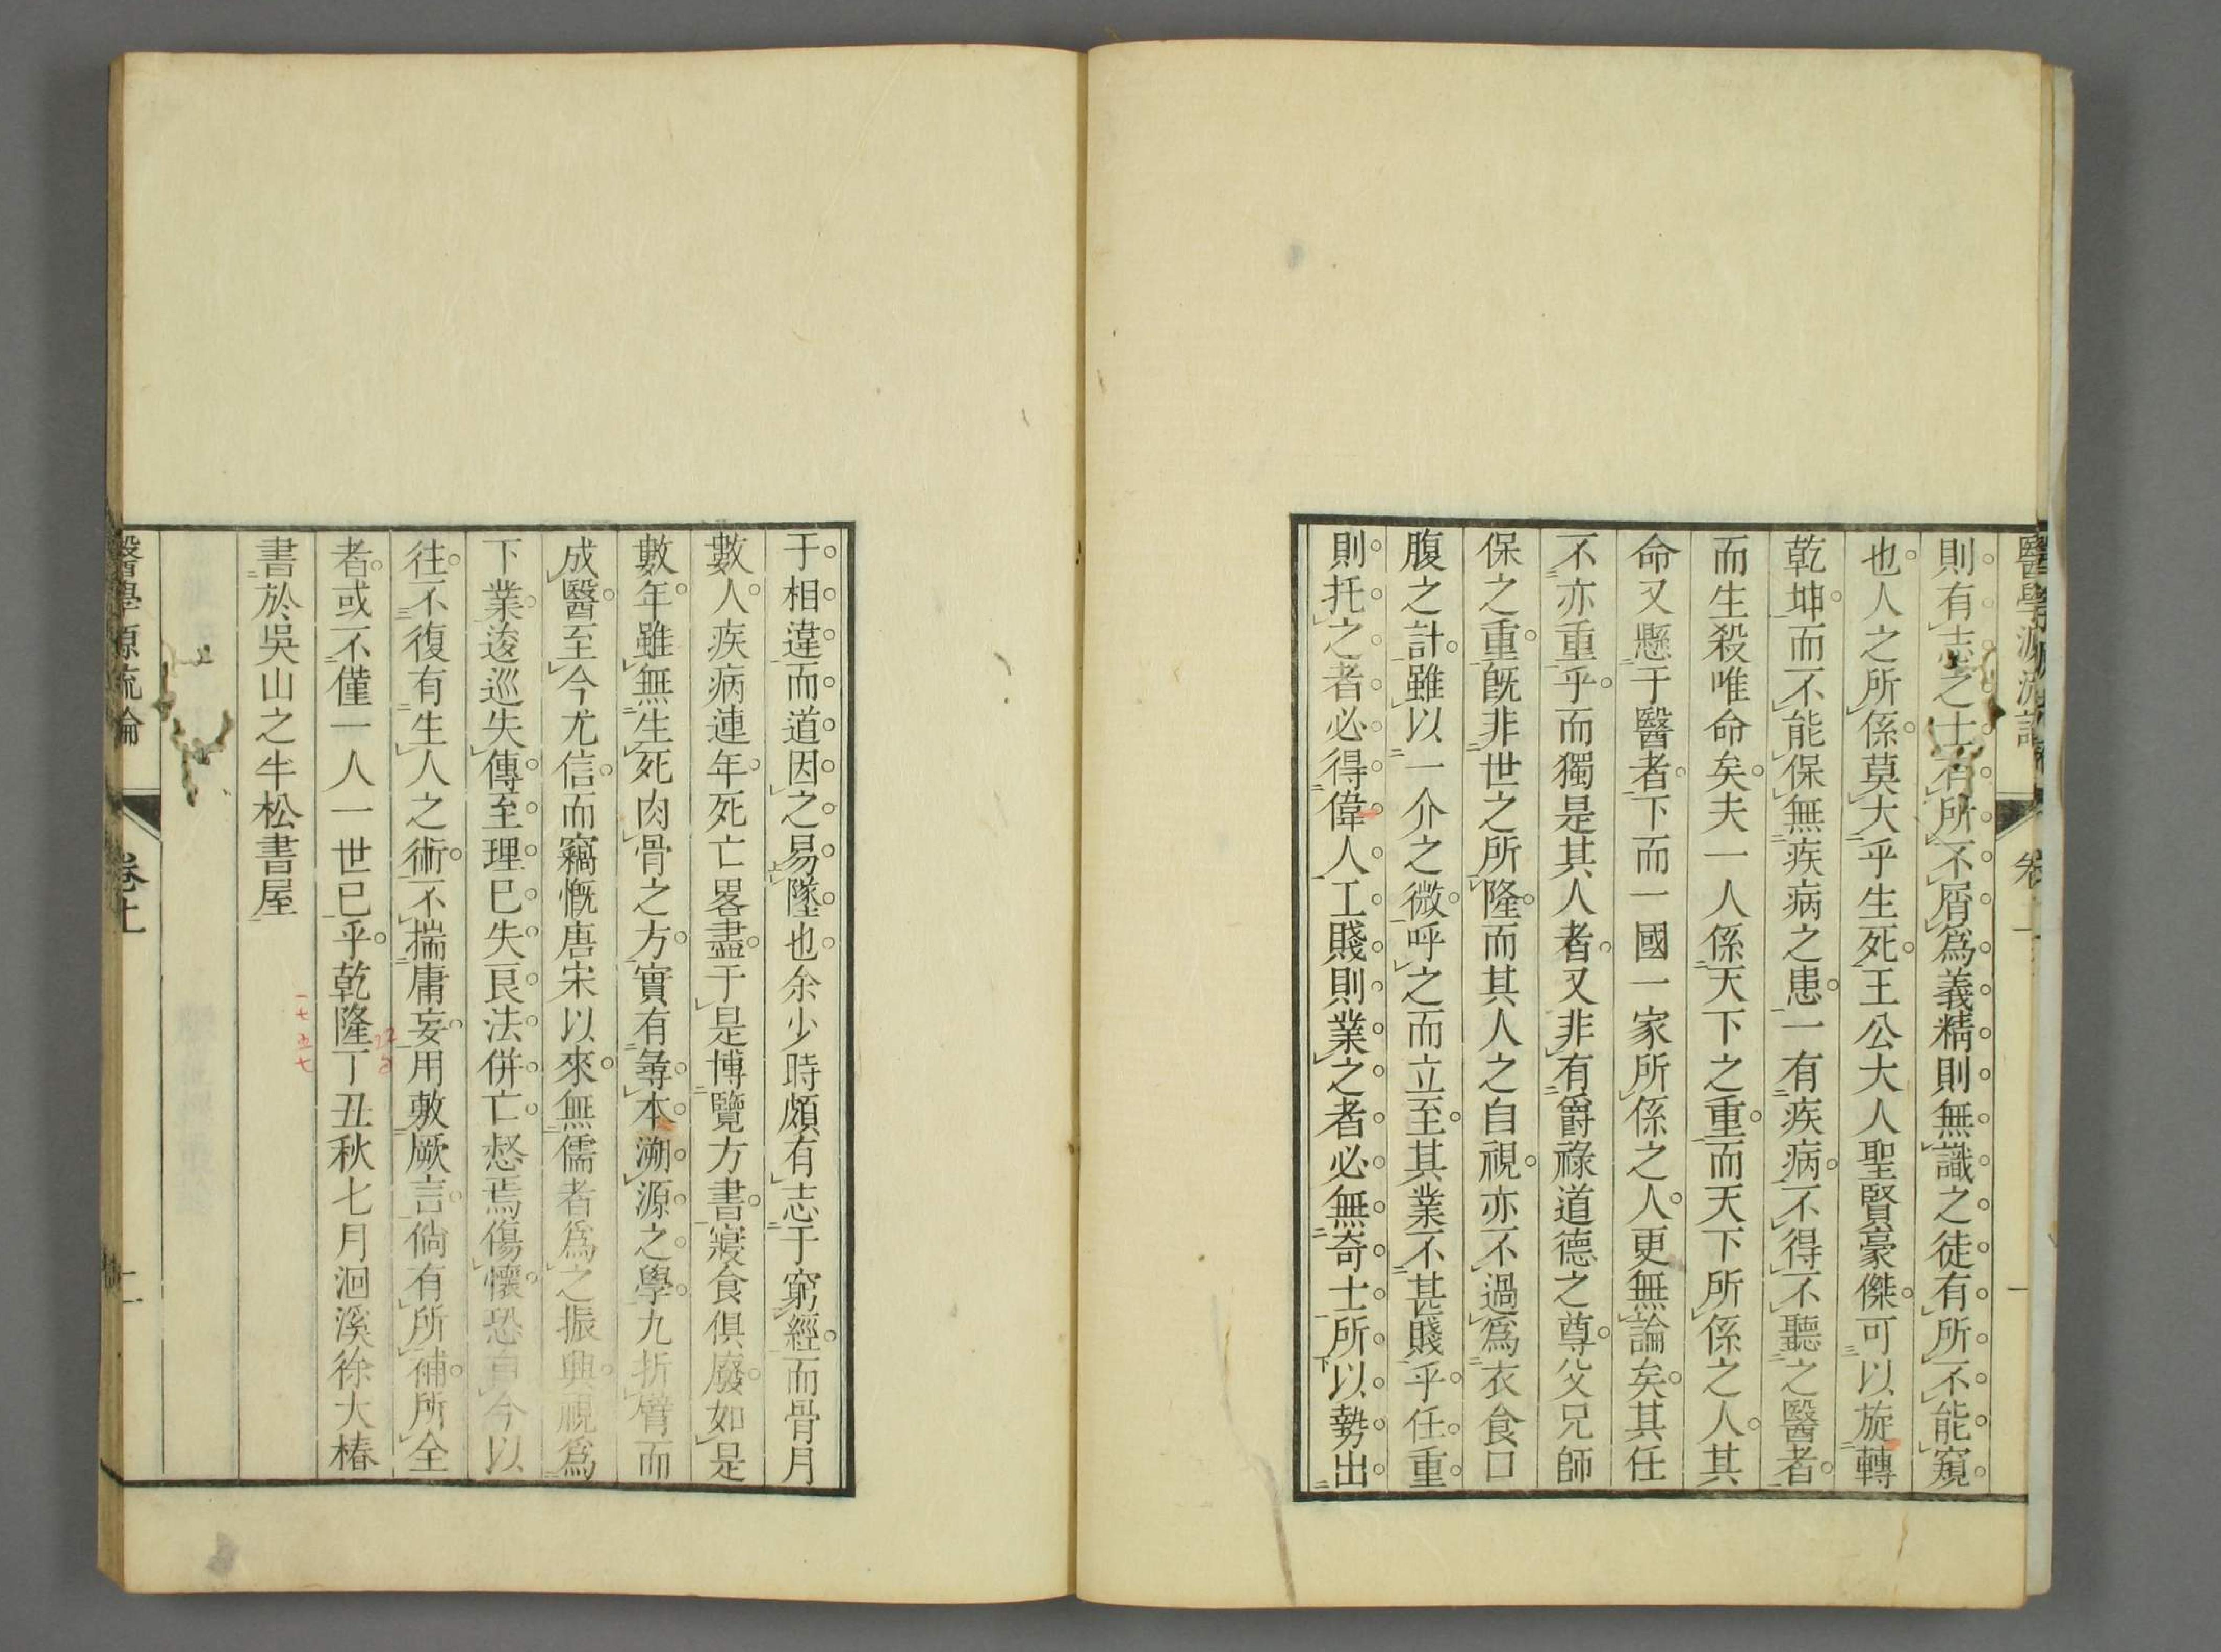 醫學源流論 卷上 一
則有志之士有所不屑爲義精則無識之徒有所不能窺
也人之所係莫大乎生死王公大人聖賢豪傑可以旋轉
乾坤而不能保無疾病之患一有疾病不得不聽之醫者
而生殺唯命矣夫一人係天下之重而天下所係之人其
命又懸于醫者下而一國一家所係之人更無論矣其任
不亦重乎而獨是其人者又非有爵祿道德之尊父兄師
保之重既非世之所隆而其人之自視亦不過爲衣食口
腹之計雖以一介之微呼之而立至其業不甚賤乎任重
則托之者必得偉人工賤則業之者必無奇士所以勢出
于相違而道因之易墜也余少時頗有志于窮經而骨月
數人疾病連年死亡畧盡于是博覽方書寢食俱廢如是
數年雖無生死肉骨之方實有尋本溯源之學九折臂而
成醫至今尤信而竊慨唐宋以來無儒者爲之振興視爲
下業逡巡失傳至理已失良法併亡惄焉傷懷恐自今以
往不復有生人之術不揣庸妄用敷厥言倘有所補所全
者或不僅一人一世已乎乾隆丁丑秋七月洄溪徐大椿
22
一七五七
書於吳山之半松書屋
醫學源流論 卷上